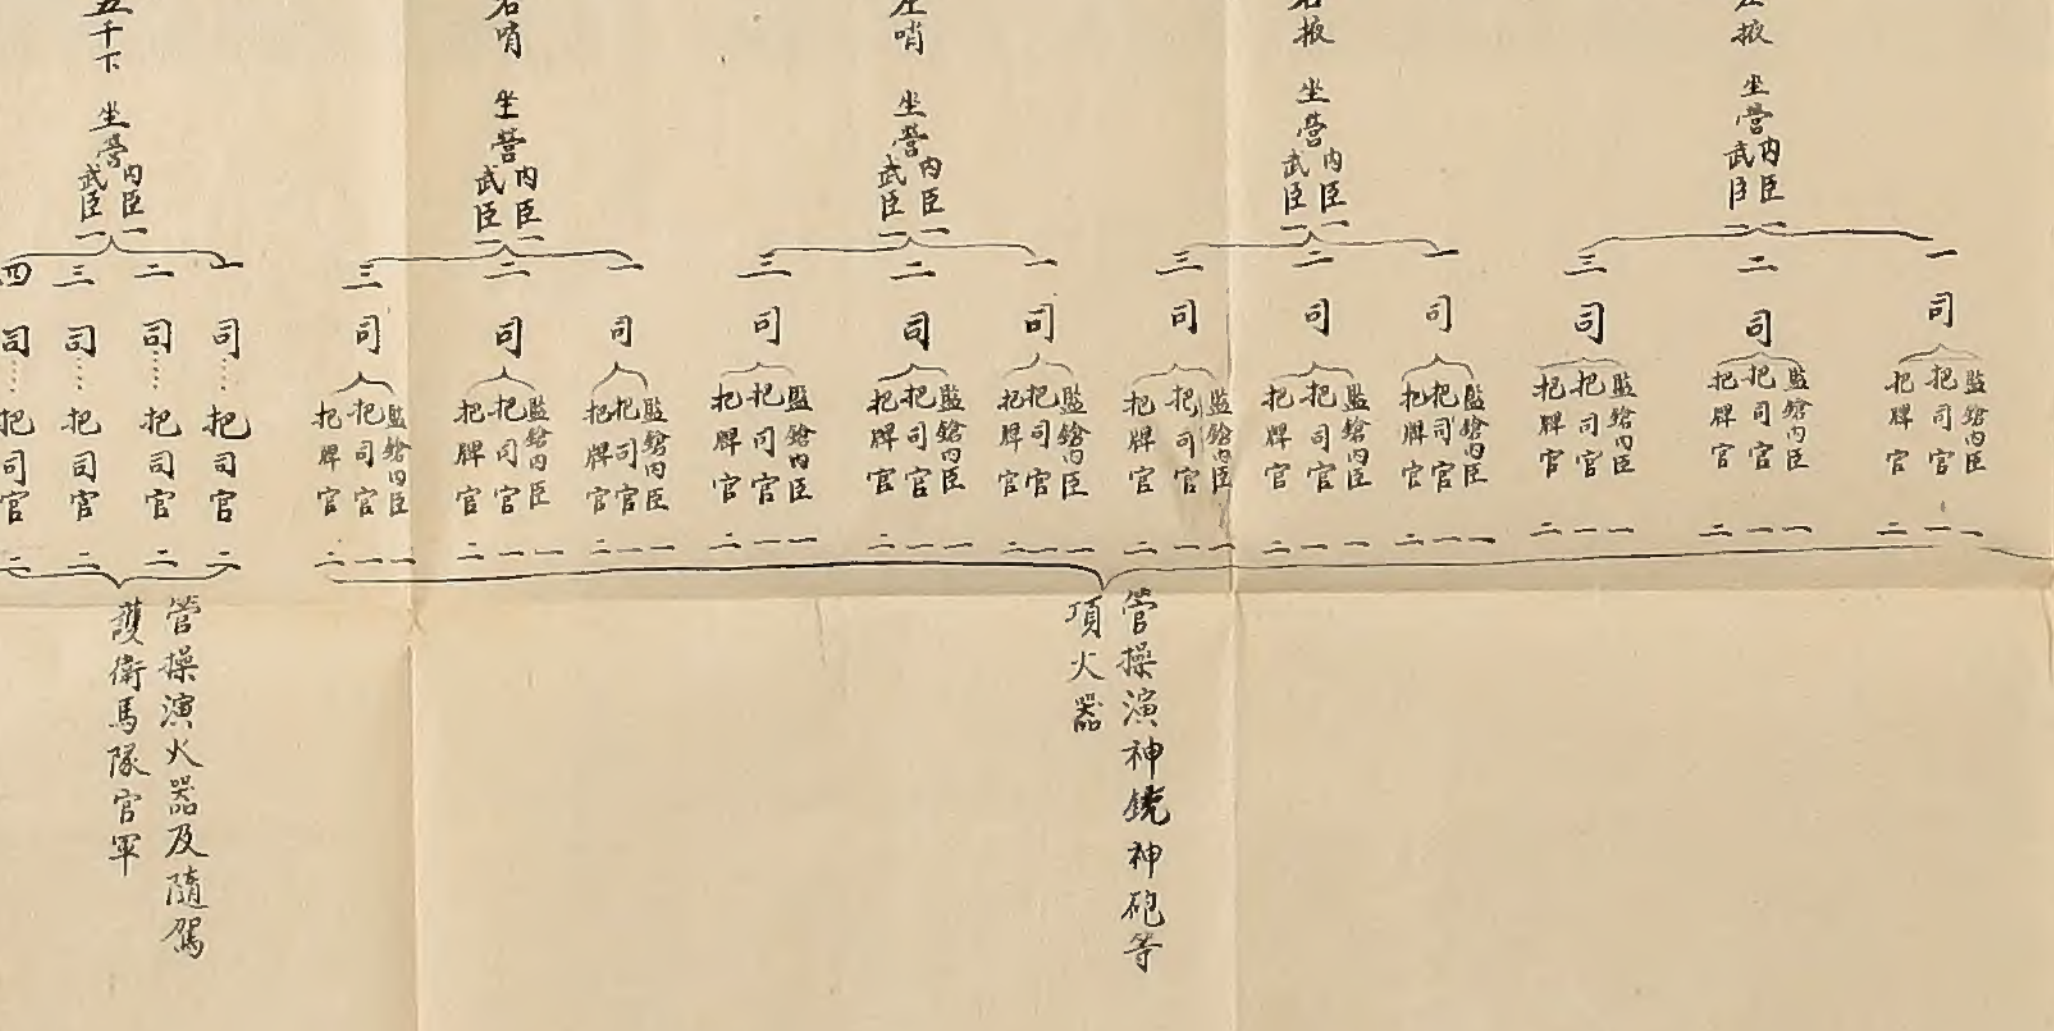 左掖
坐營
内臣一
武臣一
一司
監鎗内臣一
把司官一
把牌官二
二司
監鎗内臣一
把司官一
把牌官二
三司
監鎗内臣一
把司官一
把牌官二
右掖
坐營
内臣一
武臣一
一司
監鎗内臣一
把司官一
把牌官二
二司
監鎗内臣一
把司官一
把牌官二
三司
監鎗内臣一
把司官一
把牌官二
左哨
坐營
内臣一
武臣一
一司
監鎗内臣一
把司官一
把牌官二
二司
監鎗内臣一
把司官一
把牌官二
三司
監鎗内臣一
把司官一
把牌官二
右哨
坐營
内臣一
武臣一
一司
監鎗内臣一
把司官一
把牌官二
二司
監鎗内臣一
把司官一
把牌官二
三司
監鎗内臣一
把司官一
把牌官二
管操演神銃神砲等
項火器
五千下
坐營
内臣一
武臣一
一司……把司官二
二司……把司官二
三司……把司官二
四司……把司官二
管操演火器及隨駕
護衛馬隊官軍